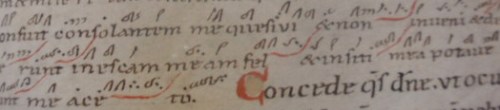 onfuit consolantem me quesivi & non inveni & de
runt in escam meam fel & in siti mea potaue
unt me ace to. Concede q̅s d̅ne. ut ocu